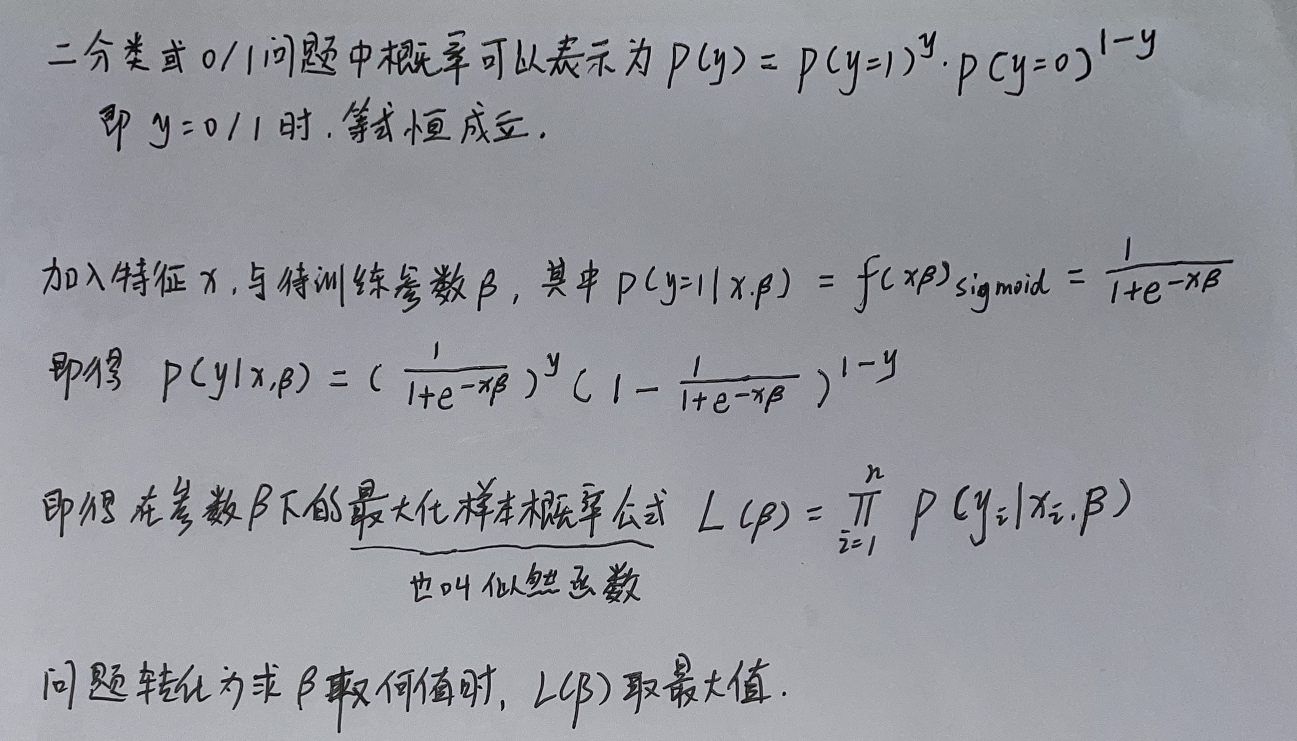 二分类或0/1问题中概率可以表示为 P(y) = P(y=1)^y · P(y=0)^{1-y}
即 y=0/1时,等式恒成立.
加入特征x,与待训练参数β, 其中 P(y=1|x.β) = f(xβ)_{sigmoid} = \frac{1}{1+e^{-xβ}}
即得 P(y|x,β) = (\frac{1}{1+e^{-xβ}})^y (1-\frac{1}{1+e^{-xβ}})^{1-y}
即得在参数β下的最大化样本概率公式 L(β) = \prod_{i=1}^{n} P(y_i|x_i.β)
也叫似然函数
问题转化为求β取何值时, L(β)取最大值.